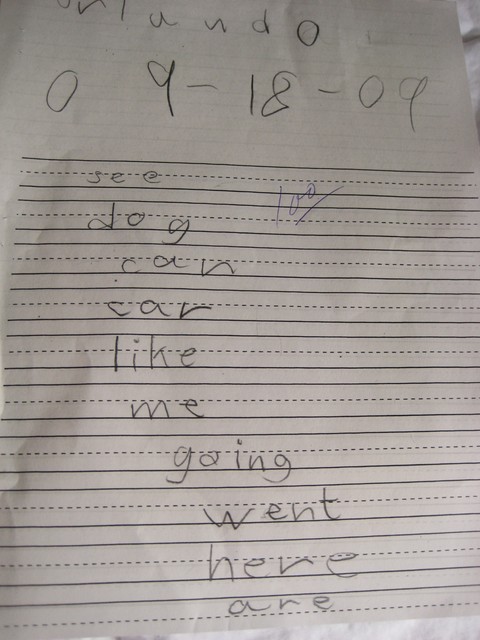 orlando
09-18-09
see
100
dog
can
car
like
me
going
went
here
are